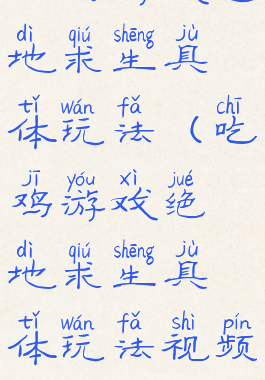 dì qiú shēng jù
地求生具
tǐ wán fǎ chī
体玩法（吃
jī yóu xì jué
鸡游戏绝
dì qiú shēng jù
地求生具
tǐ wán fǎ shì pín
体玩法视频